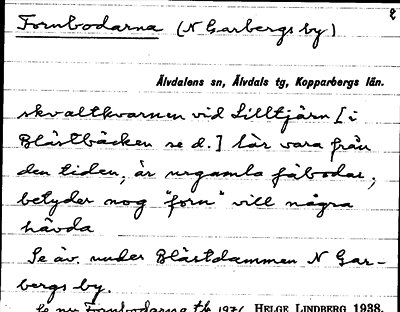 Fornbodarna (N Garbergs by)
Älvdalens sn, Älvdals tg, Kopparbergs län.
skvaltkvarnen vid Lilltjärn [i
Blästbäcken se d.] lär vara från
den tiden, är urgamla fäbodar,
betyder nog "forn" vill några
hävda
Se äv. under Blästdammen N Gar-
bergs by.
Se nu Fornbodarna 1976 HELGE LINDBERG 1938.